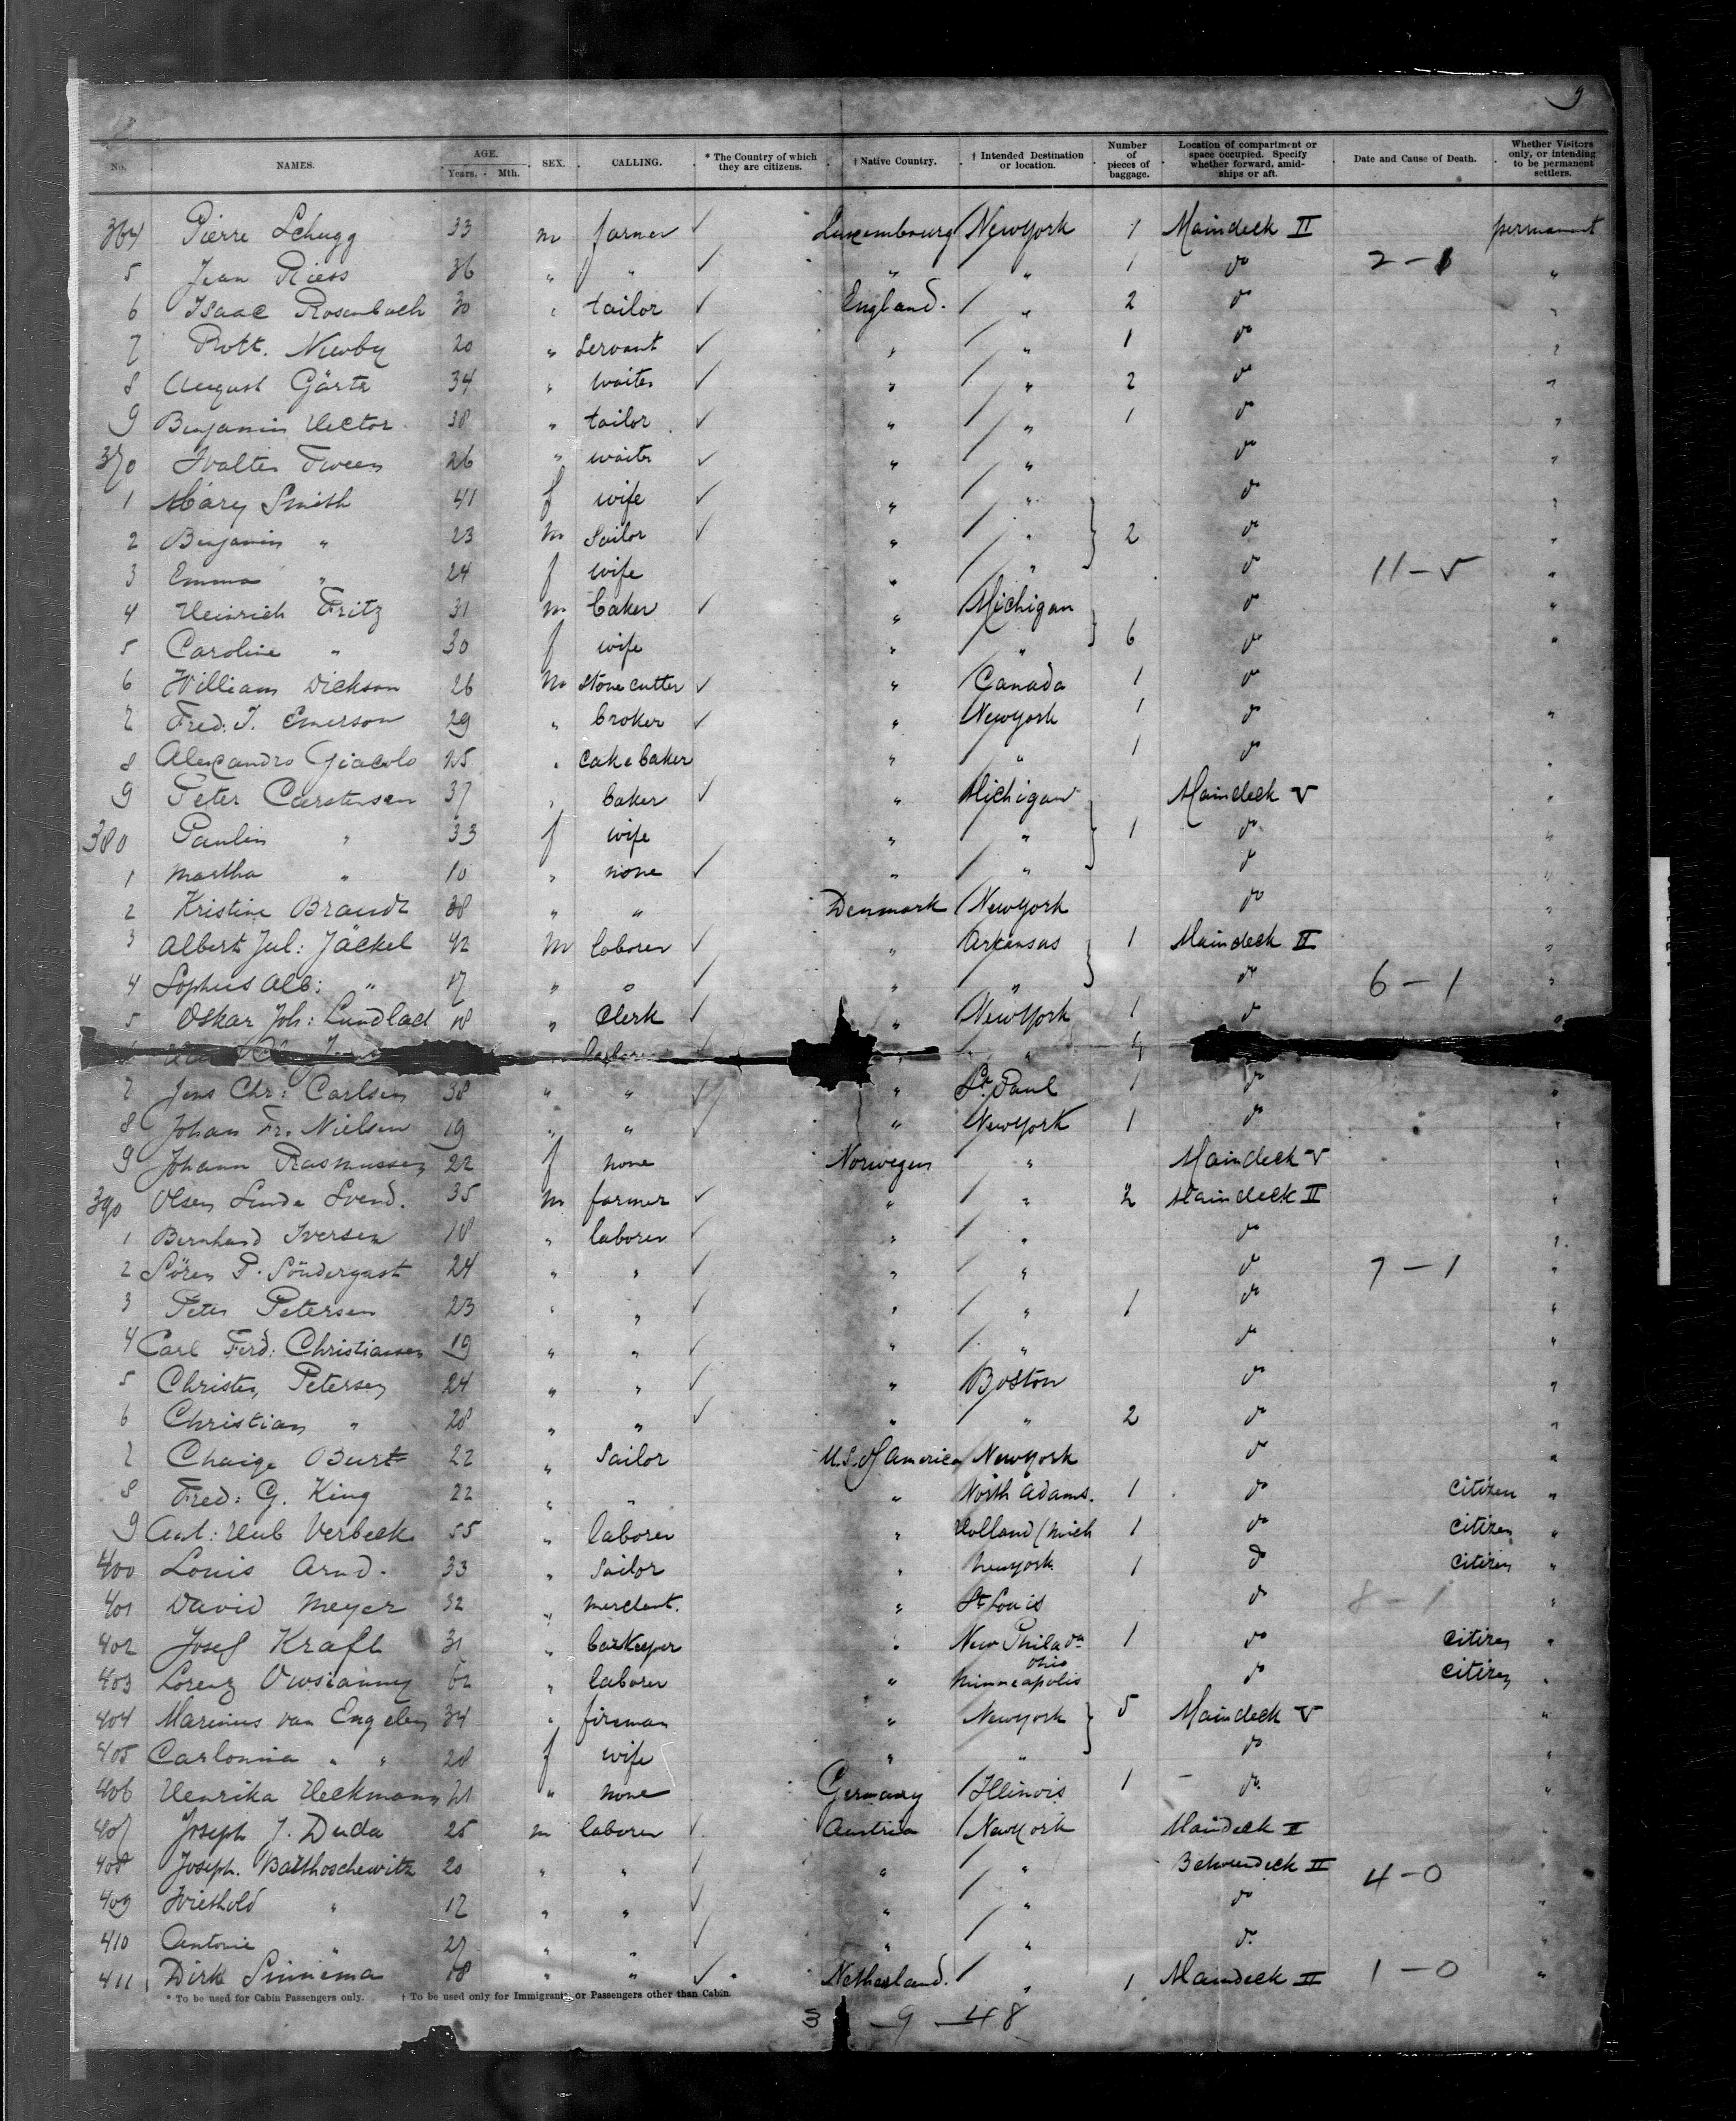 9
No. NAMES. AGE. Years. Mth. SEX. CALLING. * The Country of which they are citizens. † Native Country. † Intended Destination or location. Number of pieces of baggage. Location of compartment or space occupied. Specify whether forward, amidships or aft. Date and Cause of Death. Whether Visitors only, or intending to be permanent settlers.
364 Pierre Schugg 33 m farmer ✓ Luxembourg / NewYork 1 Maindeck II permanent
5 Jean Riess 36 " " ✓ " / " 1 do 2-1 "
6 Isaac Rosenbach 30 " tailor ✓ England. / " 2 do "
7 Robt. Newby 20 " servant ✓ " / " 1 do "
8 August Görtz 34 " waiter ✓ " / " 2 do "
9 Benjamin Hector 38 " tailor ✓ " / " 1 do "
370 Walter Tween 26 " waiter ✓ " / " do "
1 Mary Smith 41 f wife ✓ " / " do "
2 Benjamin " 23 m Sailor ✓ " / " 2 do "
3 Emma " 24 f wife " / " do 11-5 "
4 Heinrich Fritz 31 m baker ✓ " / Michigan do "
5 Caroline " 30 f wife " / " 6 do "
6 William Dickson 26 m Stone cutter ✓ " / Canada 1 do
7 Fred. T. Emerson 29 " broker ✓ " / NewYork 1 do "
8 Alexandro Giacolo 25 " cake baker " / " 1 do "
9 Peter Carstensen 37 " baker ✓ " Michigan Maindeck V "
380 Paulin " 33 f wife " / " 1 do "
1 Martha " 10 " none ✓ " / " do "
2 Kristine Brandt 38 " " Denmark / NewYork do "
3 Albert Jul: Jäckel 42 m laborer ✓ " Arkansas 1 Maindeck II "
4 Sophus Alb: " 17 " " ✓ " " do 6-1 "
5 Oskar Joh: Lundlad 18 " Clerk ✓ " NewYork 1 do "
7 Jens Chr: Carlsen 38 " " ✓ " St. Paul 1 do "
8 Johan Fr. Nielsen 19 " " ✓ " NewYork 1 do "
9 Johann Rasmussen 22 f none Norwegen " Maindeck V "
390 Olsen Linde Svend. 35 m farmer ✓ " / " 2 Maindeck II "
1 Bernhard Iversen 18 " laborer ✓ " / " do "
2 Sören P. Söndergast 24 " " ✓ " / " do 7-1 "
3 Peter Petersen 23 " " ✓ " / " 1 do "
4 Carl Ferd: Christiansen 19 " " ✓ " / " do "
5 Christen Petersen 24 " " ✓ " Boston do "
6 Christian " 28 " " ✓ " / " 2 do "
7 Burt 22 " Sailor U.S. of America / NewYork do "
8 Fred: G. King 22 " " " North Adams. 1 do citizen "
9 Ant: Hub Verbeek 55 " laborer " Holland (Mich 1 do citizen "
400 Louis Arnd. 33 " Sailor " Newyork 1 do citizen "
401 David Meyer 32 " merchant. " St Louis do 8-1 "
402 Josef Kraft 31 " barkeeper " New Philada Ohio 1 do citizen "
403 Lorenz 62 " laborer " Minneapolis do citizen "
404 Marinus van Engelen 34 " fireman " NewYork 5 Maindeck V "
405 Carlonina " " 28 f wife " " do "
406 Henrika Heckmann 21 " none Germany / Illinois 1 - do "
407 Joseph J. Duda 25 m laborer ✓ Austria / NewYork Maindeck II
408 Joseph. Balthoschewitz 20 " " ✓ " / " II 4-0
409 Wiethold " 17 " " ✓ " / " do "
410 Antonie " 27 " " ✓ " / " do "
411 Dirk Sinnema 18 " " ✓ Netherland. / " 1 Maindeck II 1-0 "
* To be used for Cabin Passengers only. † To be used only for Immigrants or Passengers other than Cabin.
3 9 - 48